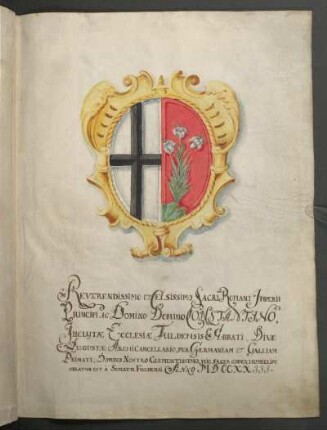 REVERENDISSIMO ET CELSISSIMO SACRI ROMANI IMPERII
PRINCIPI AC DOMINO DOMINO CONSTANTINO,
INCLYTÆ ECCLESIÆ FULDENSIS ABBATI, DIVÆ
AUGUSTÆ ARCHICANCELLARIO, PER GERMANIAM ET GALLIAM
PRIMATI, DOMINO NOSTRO CLEMENTISSIMO,
A SENATU FULDENSI ANNO MDCCXXIII.